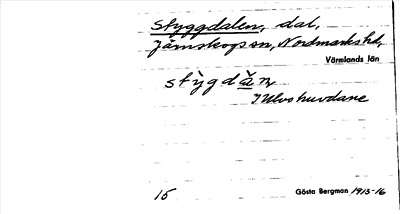 Styggdalen, dal,
Järnskogs sn, Nordmarks hd,
Värmlands län
I Ulvshuvdane
15 Gösta Bergman 1913-16